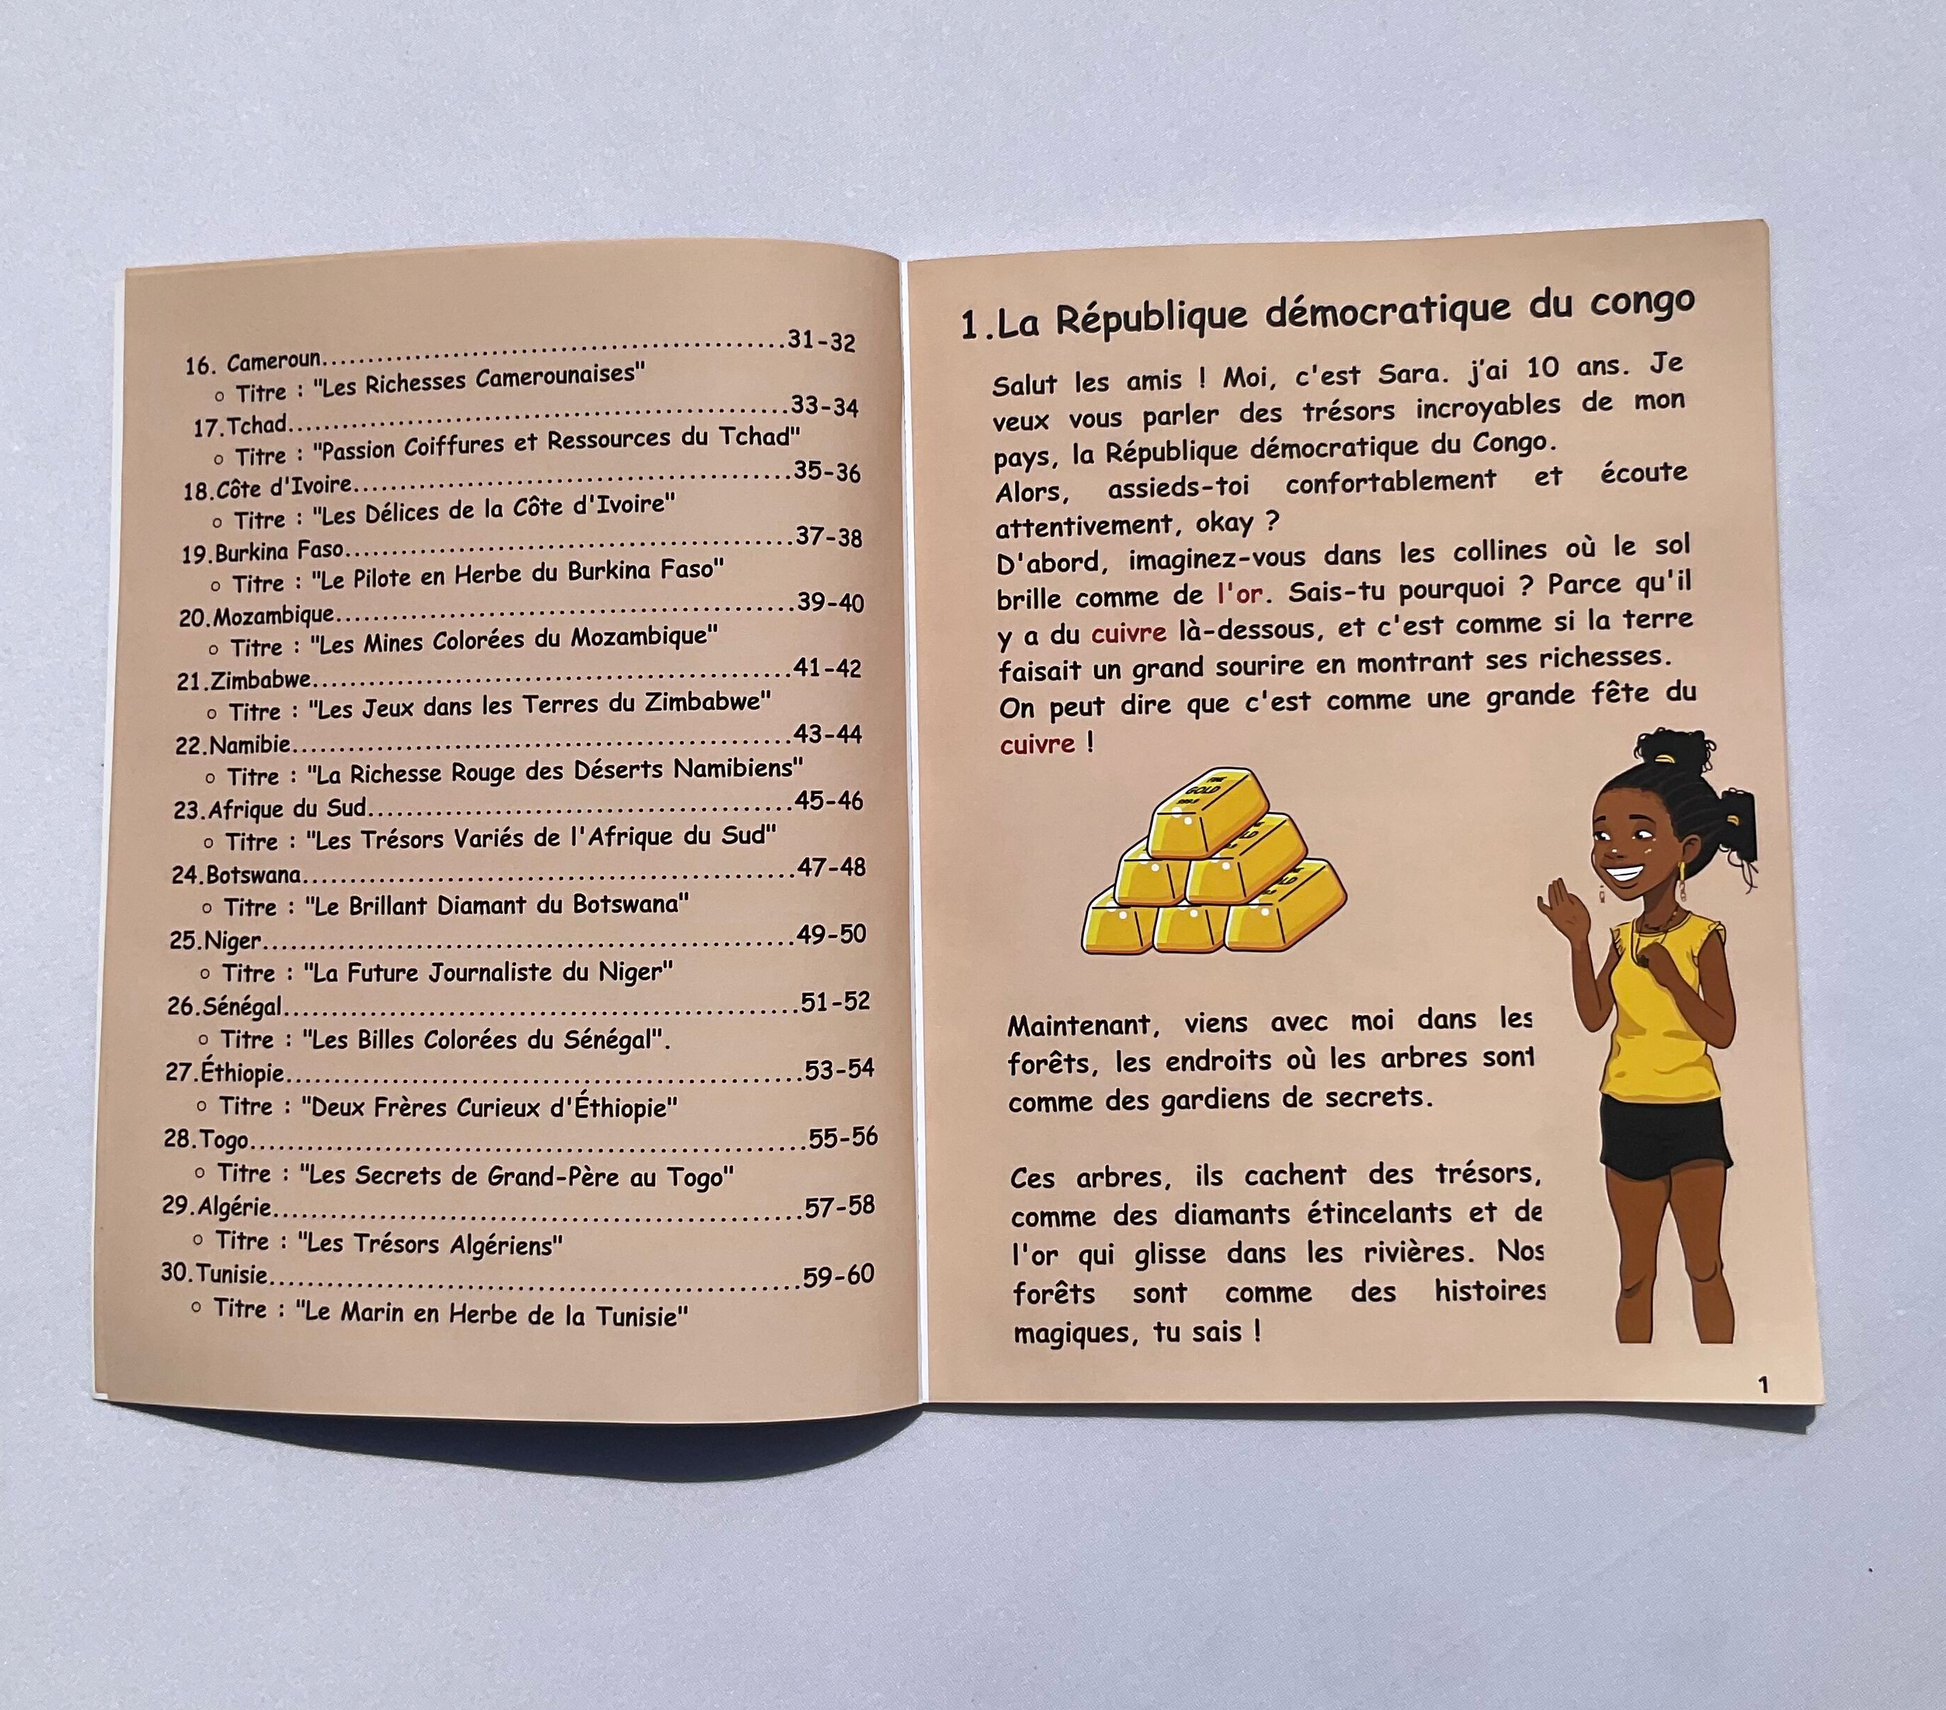 16. Cameroun..................................................31-32
o Titre : "Les Richesses Camerounaises"
17.Tchad......................................................33-34
o Titre : "Passion Coiffures et Ressources du Tchad"
18.Côte d'Ivoire...............................................35-36
o Titre : "Les Délices de la Côte d'Ivoire"
19.Burkina Faso................................................37-38
o Titre : "Le Pilote en Herbe du Burkina Faso"
20.Mozambique.................................................39-40
o Titre : "Les Mines Colorées du Mozambique"
21.Zimbabwe....................................................41-42
o Titre : "Les Jeux dans les Terres du Zimbabwe"
22.Namibie......................................................43-44
o Titre : "La Richesse Rouge des Déserts Namibiens"
23.Afrique du Sud..............................................45-46
o Titre : "Les Trésors Variés de l'Afrique du Sud"
24.Botswana.....................................................47-48
o Titre : "Le Brillant Diamant du Botswana"
25.Niger.........................................................49-50
o Titre : "La Future Journaliste du Niger"
26.Sénégal.......................................................51-52
o Titre : "Les Billes Colorées du Sénégal".
27.Éthiopie.......................................................53-54
o Titre : "Deux Frères Curieux d'Éthiopie"
28.Togo...........................................................55-56
o Titre : "Les Secrets de Grand-Père au Togo"
29.Algérie........................................................57-58
o Titre : "Les Trésors Algériens"
30.Tunisie........................................................59-60
o Titre : "Le Marin en Herbe de la Tunisie"
1.La République démocratique du congo
Salut les amis ! Moi, c'est Sara. j'ai 10 ans. Je
veux vous parler des trésors incroyables de mon
pays, la République démocratique du Congo.
Alors, assieds-toi confortablement et écoute
attentivement, okay ?
D'abord, imaginez-vous dans les collines où le sol
brille comme de l'or. Sais-tu pourquoi ? Parce qu'il
y a du cuivre là-dessous, et c'est comme si la terre
faisait un grand sourire en montrant ses richesses.
On peut dire que c'est comme une grande fête du
cuivre !
FINE
GOLD
999.9
Maintenant, viens avec moi dans les
forêts, les endroits où les arbres sont
comme des gardiens de secrets.
Ces arbres, ils cachent des trésors,
comme des diamants étincelants et de
l'or qui glisse dans les rivières. Nos
forêts sont comme des histoires
magiques, tu sais !
1